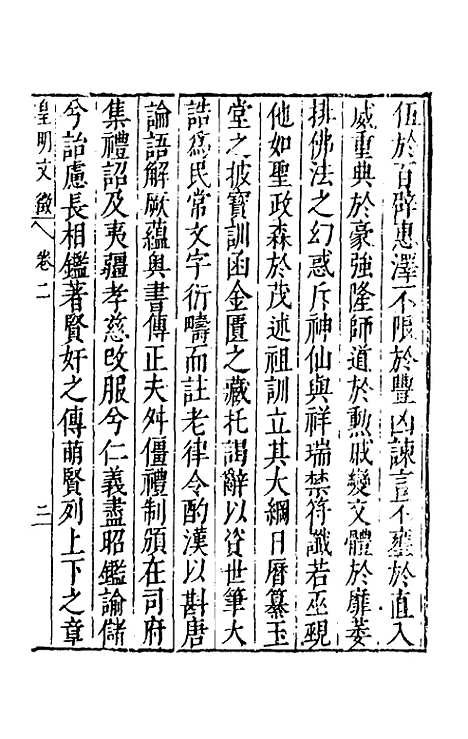 伍於百辟惠澤不限於豐凶諫言不壅於直入
威重典於豪強隆師道於勲戚變文體於靡萎
排佛法之幻惑斥神仙與祥瑞禁符讖若巫覡
他如聖政森於茂述祖訓立其大綱日曆纂玉
堂之披寶訓函金匱之藏托謁辭以資世筆大
誥爲民常文字衍疇而註老律令酌漢以斟唐
論語解厥蘊奥書傳正夫舛僵禮制頒在司府
集禮詔及夷疆孝慈攺服兮仁義盡昭鑑諭儲
兮詒慮長相鑑著賢奸之傳萌賢列上下之章
皇明文徵 卷二 二